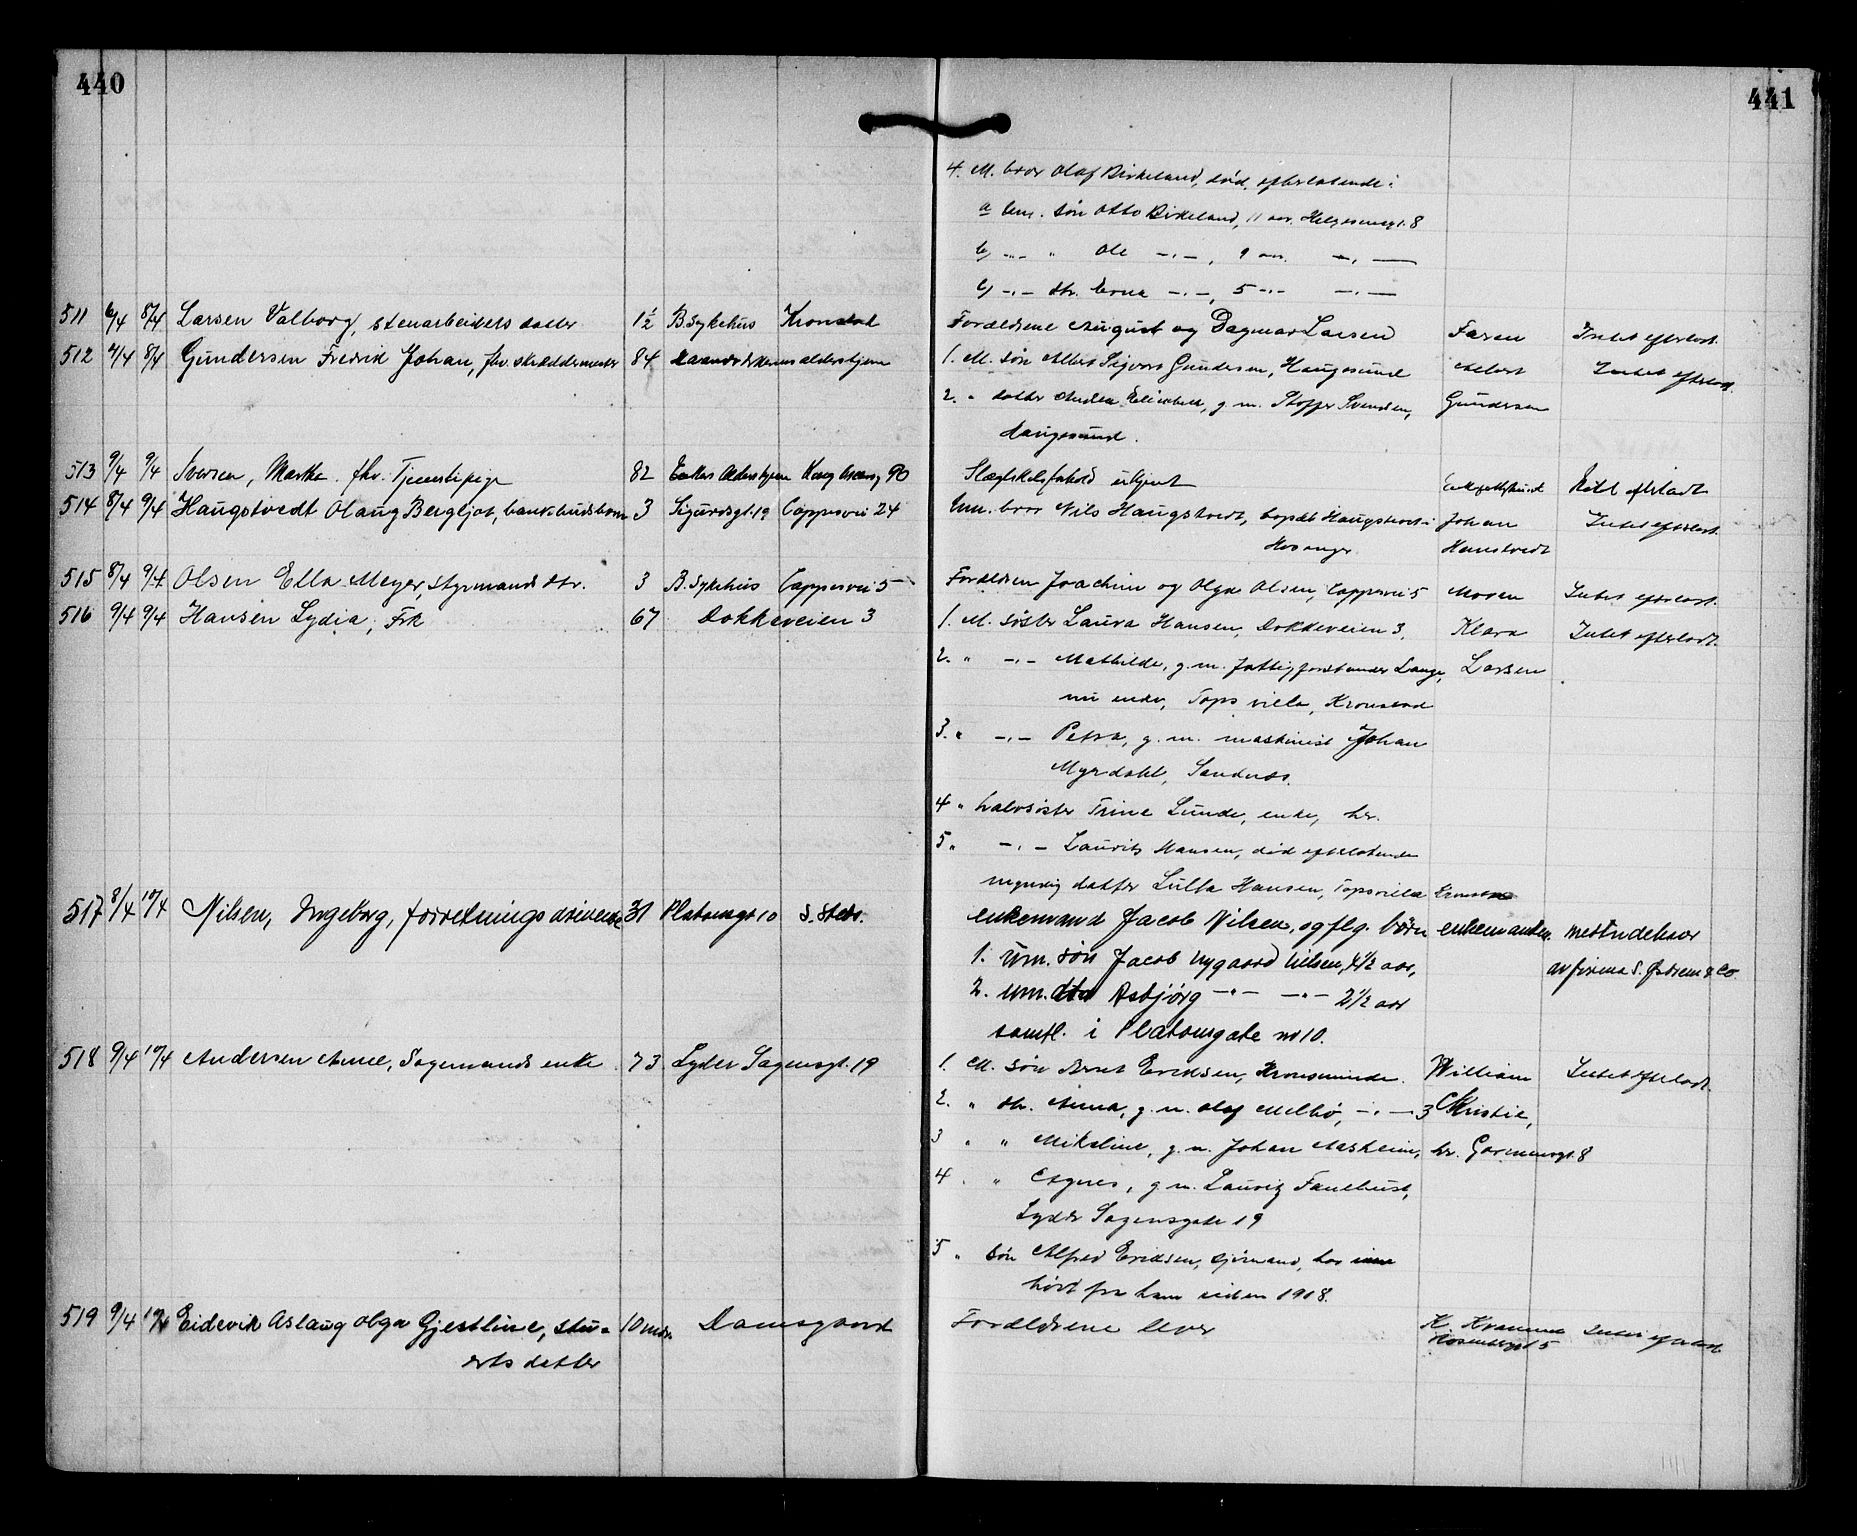 440
441
4. M. bror Olaf Birkeland, død, efterlatende:
a um. søn Otto Birkeland, 11 aar, Helgesensgt. 8
b) -"- " Ole -"-, 9 aar. -"-
c) -"- dtr. Erna -"-, 5 -"- -"-
511 6/4 8/4 Larsen Valborg, stenarbeiders datter 1½ B. Sykehus Kronstad Forældrene August og Dagmar Larsen Faren Intet efterlatt.
512 4/4 8/4 Gundersen Fredrik Johan, fhv. skræddermester 84 aldershjem 1. M. søn Albert Sigvart Gundersen, Haugesund Albert Intet efterladt.
2. " datter Andrea Elisabeth, g. m. Stoffer Svendsen, Gundersen
Haugesund.
513 9/4 9/4 Iversen, Martha. fhv. Tjenestepige 82 Enkers Aldershjem 90 Slægtskabsforhold ukjent Intet efterladt
514 8/4 9/4 Haugstvedt Olaug Bergljot, bankbudsbarn 3 Sigurdsgt. 19 Cappesvei 24 Um. bror Nils Haugstvedt, bopæl Haugstvedt i Johan Intet efterlatt.
Hosanger. Haugstvedt
515 8/4 9/4 Olsen Ella Meyer, styrmands dtr. 3 B. Sykehus Cappesvei 5 Forældren Joachim og Olga Olsen, Cappesvei 5 Moren Intet efterlatt.
516 9/4 9/4 Hansen Lydia, Frk 67 Dokkeveien 3 1. M. søster Laura Hansen, Dokkeveien 3, Klara Intet efterladt.
2. " -"- Mathilde, g. m. fattigforstander Lange, Larsen
nu enke, Tops villa, Kronstad
3. " -"- Petra, g. m. maskinist Johan
Myrdahl, Sandnes.
4 " halvsøster Trine Lunde, enke, her.
5 " -"- Lauritz Hansen, død efterlatende
myndig datter Lulla Hansen, Topsvilla Kronstad
517 8/4 10/4 Nilsen, Ingeborg, forretningsdrivende 31 Platousgt 10 S. Sted. enkemand Jacob Nilsen, og flg. børn enkemanden. medindehaver
1. Um. søn Jacob Nygaard Nilsen, 4½ aar, av firma S. Østrem & Co.
2. um. dtr Asbjørg -"- -"- 2½ aar
samtl. i Platousgate no 10.
518 9/4 10/4 Andersen Anne, Sagmands enke 73 Lyder Sagensgt. 19 1. M. søn Bernt Eriksen, Kronsminde. William Intet efterladt.
2. " dtr. Anna, g. m. Olaf Melbø, -"- 3 Christie,
3 " " Mikaline, g. m. Johan Aasheim, her. Gormsgt. 8
4 " " Agnes, g m. Lauritz Fauthust,
Lyder Sagensgate 19
5 " søn Alfred Eriksen, sjømand, har
hørt fra ham siden 1918.
519 9/4 10/4 Eidevik Aslaug Olga Gjestline, stu- 10 mdr. Damsgaard Forældrene lever Intet efterladt
erts datter Rosenbergsgt 5